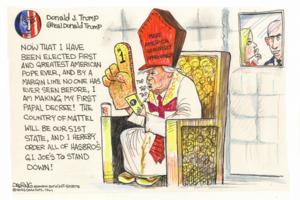 Donald J. Trump
@realDonaldTrump
NOW THAT I HAVE
BEEN ELECTED FIRST
AND GREATEST AMERICAN
POPE EVER, AND BY A
MARGIN LIKE NO ONE HAS
EVER SEEN BEFORE, I
AM MAKING MY FIRST
PAPAL DECREE! THE
COUNTRY OF MATTEL
WILL BE OUR 51ST
STATE, AND I HEREBY
ORDER ALL OF HASBRO'S
G.I. JOE'S TO STAND
DOWN!
MAKE
AMERICA
1